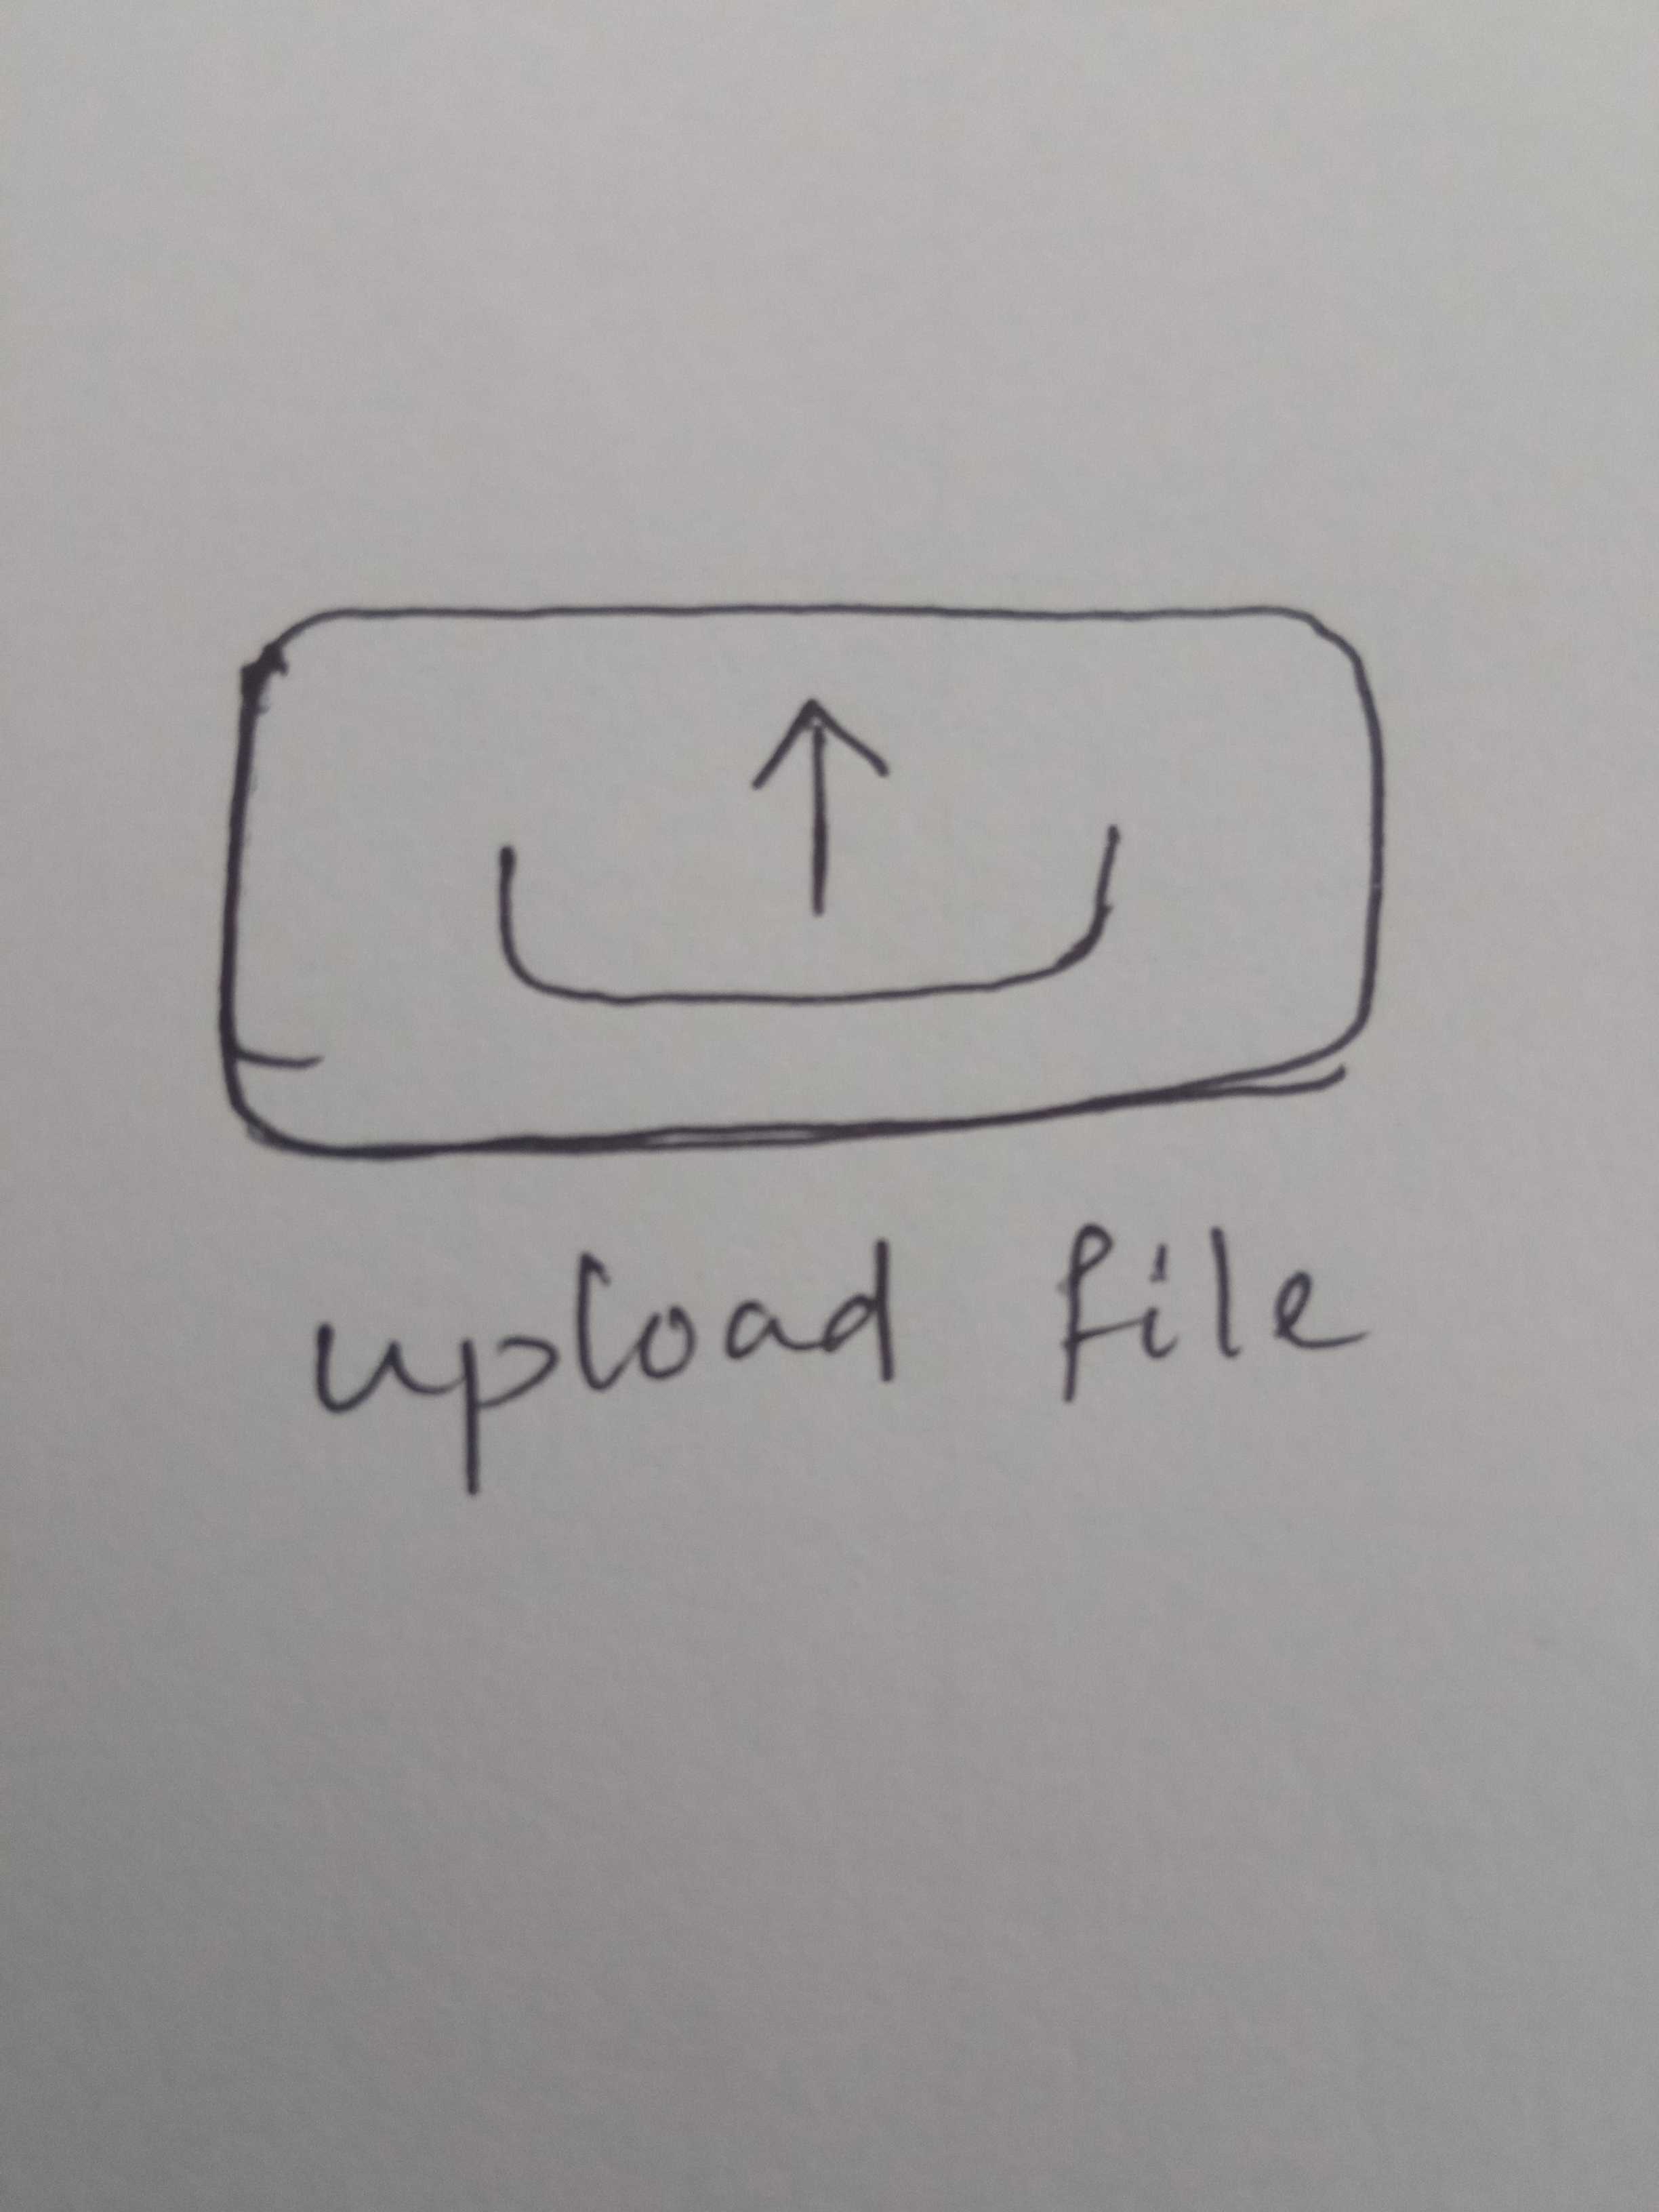 upload file